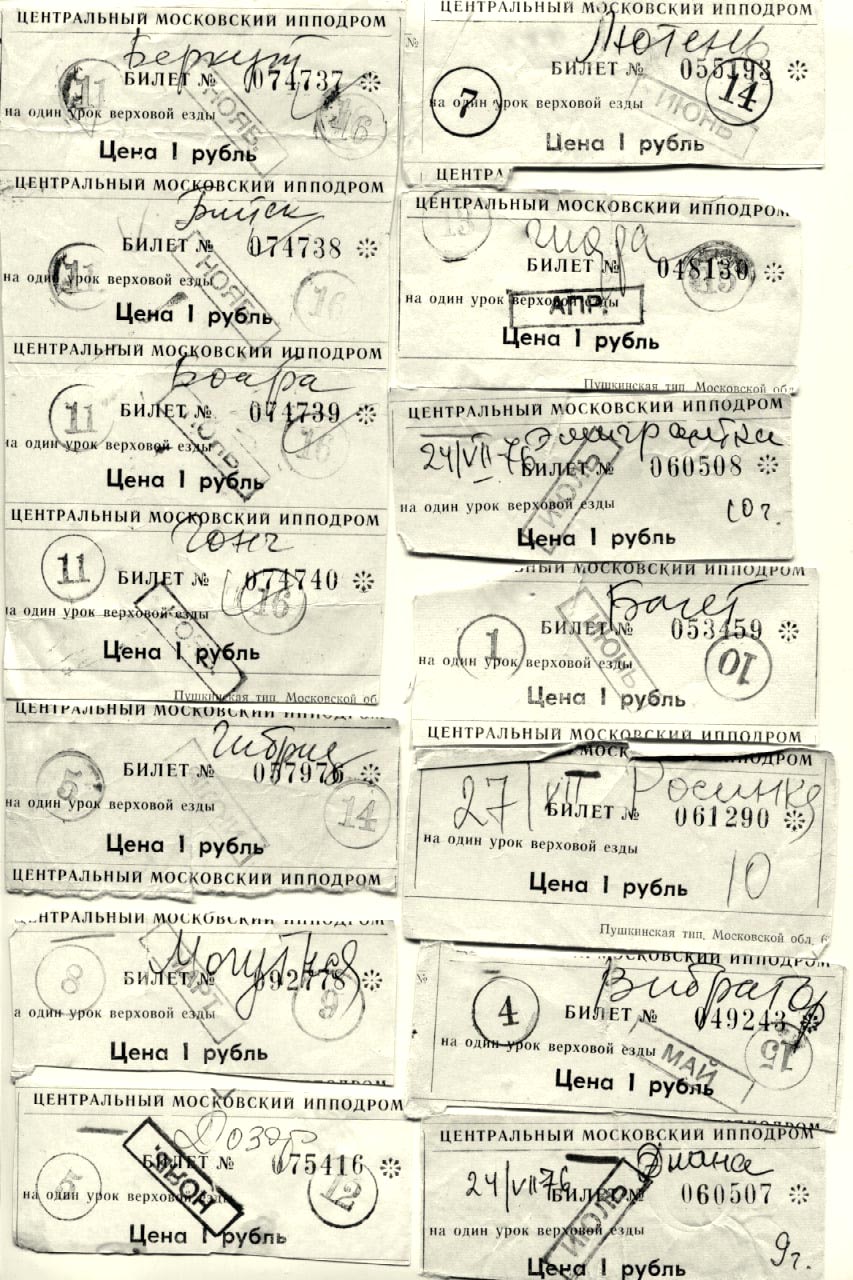 ЦЕНТРАЛЬНЫЙ МОСКОВСКИЙ ИППОДРОМ
Беркут
БИЛЕТ № 074737
11 НОЯБ. 16
на один урок верховой езды
Цена 1 рубль
ЦЕНТРАЛЬНЫЙ МОСКОВСКИЙ ИППОДРОМ
Бийск
БИЛЕТ № 074738
11 НОЯБ. 16
на один урок верховой езды
Цена 1 рубль
ЦЕНТРАЛЬНЫЙ МОСКОВСКИЙ ИППОДРОМ
БИЛЕТ № 074739
11 16
на один урок верховой езды
Цена 1 рубль
ЦЕНТРАЛЬНЫЙ МОСКОВСКИЙ ИППОДРОМ
Гонг
11 БИЛЕТ № 074740
16
на один урок верховой езды
Цена 1 рубль
Пушкинская тип. Московской об
ЦЕНТРАЛЬНЫЙ МОСКОВСКИЙ ИППОДРОМ
Гибрид
БИЛЕТ № 057976
5 14
на один урок верховой езды
Цена 1 рубль
ЦЕНТРАЛЬНЫЙ МОСКОВСКИЙ ИППОДРОМ
ЦЕНТРАЛЬНЫЙ МОСКОВСКИЙ ИППОДРОМ
Могутная
8 БИЛЕТ № 092778
МАРТ 9
а один урок верховой езды
Цена 1 рубль
ЦЕНТРАЛЬНЫЙ МОСКОВСКИЙ ИППОДРОМ
Дозор
БИЛЕТ № 075416
5 НОЯБ. 12
на один урок верховой езды
Цена 1 рубль
ЦЕНТРАЛЬНЫЙ МОСКОВСКИЙ ИППОДРОМ
№
Лютень
БИЛЕТ № 055193
7 ИЮНЬ 14
на один урок верховой езды
Цена 1 рубль
ЦЕНТРА
ЦЕНТРАЛЬНЫЙ МОСКОВСКИЙ ИППОДРОМ
БИЛЕТ № 048130
на один урок верховой езды
АПР.
Цена 1 рубль
Пушкинская тип. Московской обл
ЦЕНТРАЛЬНЫЙ МОСКОВСКИЙ ИППОДРОМ
Эмигрантка
24/VII-76 БИЛЕТ № 060508
ИЮЛЬ
на один урок верховой езды
10 г.
Цена 1 рубль
НЫЙ МОСКОВСКИЙ ИППОДРОМ
Багет
БИЛЕТ № 053459
1 ИЮНЬ 10
на один урок верховой езды
Цена 1 рубль
ЦЕНТРАЛЬНЫЙ МОСКОВСКИЙ ИППОДРОМ
МОСК ПОДРОМ
27/VII Росинка
БИЛЕТ № 061290
на один урок верховой езды
Цена 1 рубль
10
Пушкинская тип. Московской обл.
МОСКОВСКИЙ ИППОДРОМ
№
Вибратор
4 БИЛЕТ № 049243
на один урок верховой езды
МАЙ 15
Цена 1 рубль
ЦЕНТРАЛЬНЫЙ МОСКОВСКИЙ ИППОДРОМ
Диана
24/VII-76 БИЛЕТ № 060507
ИЮЛЬ
на один урок верховой езды
9 г.
Цена 1 рубль